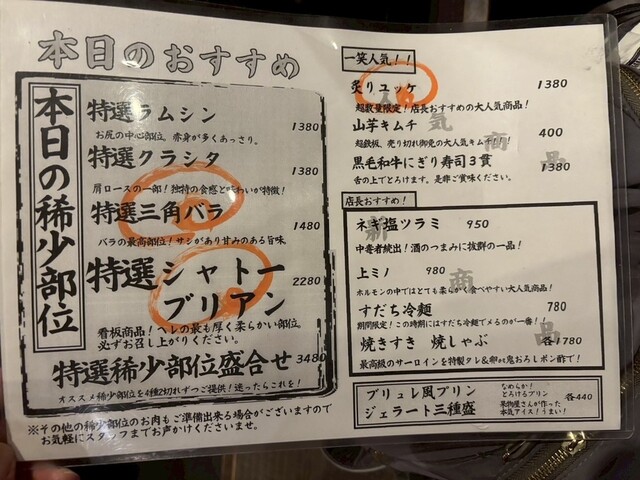 本日のおすすめ
本日の稀少部位
特選ラムシン
1380
お尻の中心部位。赤身が多くあっさり。
特選クラシタ
1380
肩ロースの一部！独特の食感と味わいが特徴！
特選三角バラ
1480
バラの最高部位！サシがあり甘みのある旨味
特選シャトー
ブリアン
2280
看板商品！ヘレの最も厚く柔らかい部位。
必ずお召し上がりください。
特選稀少部位盛合せ 3480
オススメ稀少部位を4種2切れずつご提供！迷ったらこれを！
※その他の稀少部位のお肉もご準備出来る場合がございますので
お気軽にスタッフまでお声かけくださいませ。
一笑人気！！
炙りユッケ 1380
超数量限定！店長おすすめの大人気商品！
山芋キムチ 400
超鉄板、売り切れ御免の大人気キムチ！！
黒毛和牛にぎり寿司3貫
1380
舌の上でとろけます。是非ご賞味ください。
人気商品
店長おすすめ！
ネギ塩ツラミ 950
中毒者続出！酒のつまみに抜群の一品！
上ミノ 980
ホルモンの中ではとても柔らかく食べやすい大人気商品！
すだち冷麺 780
期間限定！この時期にはすだち冷麺でメるのが一番！！
焼きすき 焼しゃぶ 各1780
最高級のサーロインを特製タレ&卵or鬼おろしポン酢で！
新商品
ブリュレ風プリン
なめらか！
とろけるプリン
ジェラート三種盛
果物屋さんが作った
本気アイス！うまい！
各440